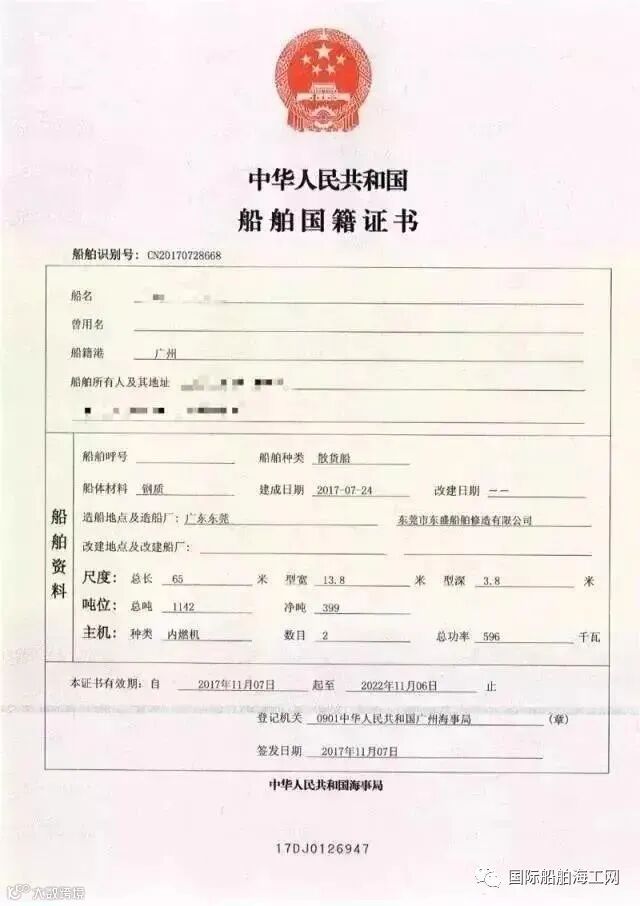 中华人民共和国
船舶国籍证书
船舶识别号：CN20170728668
船名
曾用名
船籍港 广州
船舶所有人及其地址
船舶资料
船舶呼号 船舶种类 散货船
船体材料 钢质 建成日期 2017-07-24 改建日期 --
造船地点及造船厂：广东东莞 东莞市东盛船舶修造有限公司
改建地点及改建船厂：
尺度： 总长 65 米 型宽 13.8 米 型深 3.8 米
吨位： 总吨 1142 净吨 399
主机： 种类 内燃机 数目 2 总功率 596 千瓦
本证书有效期：自 2017年11月07日 起至 2022年11月06日 止
登记机关 0901中华人民共和国广州海事局 （章）
签发日期 2017年11月07日
中华人民共和国海事局
17DJ0126947
国际船舶海工网
大数跨境